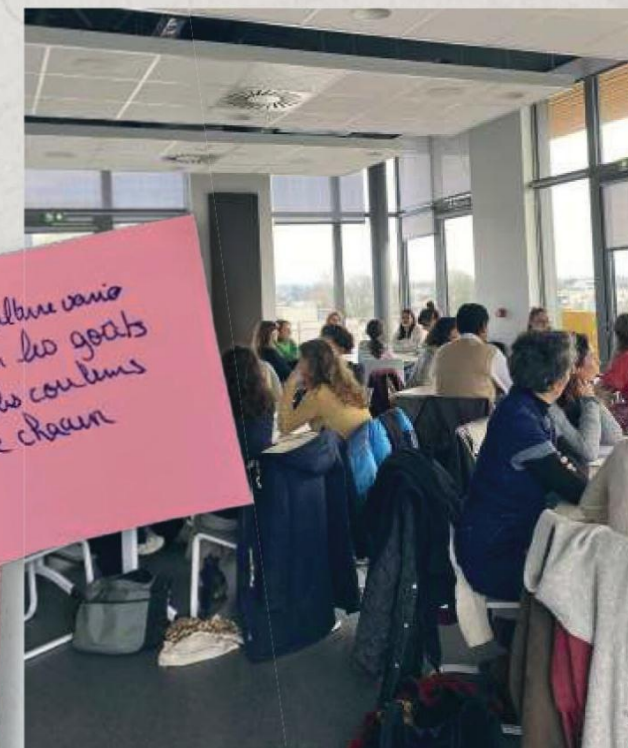 varie
les goûts
les couleurs
chacun